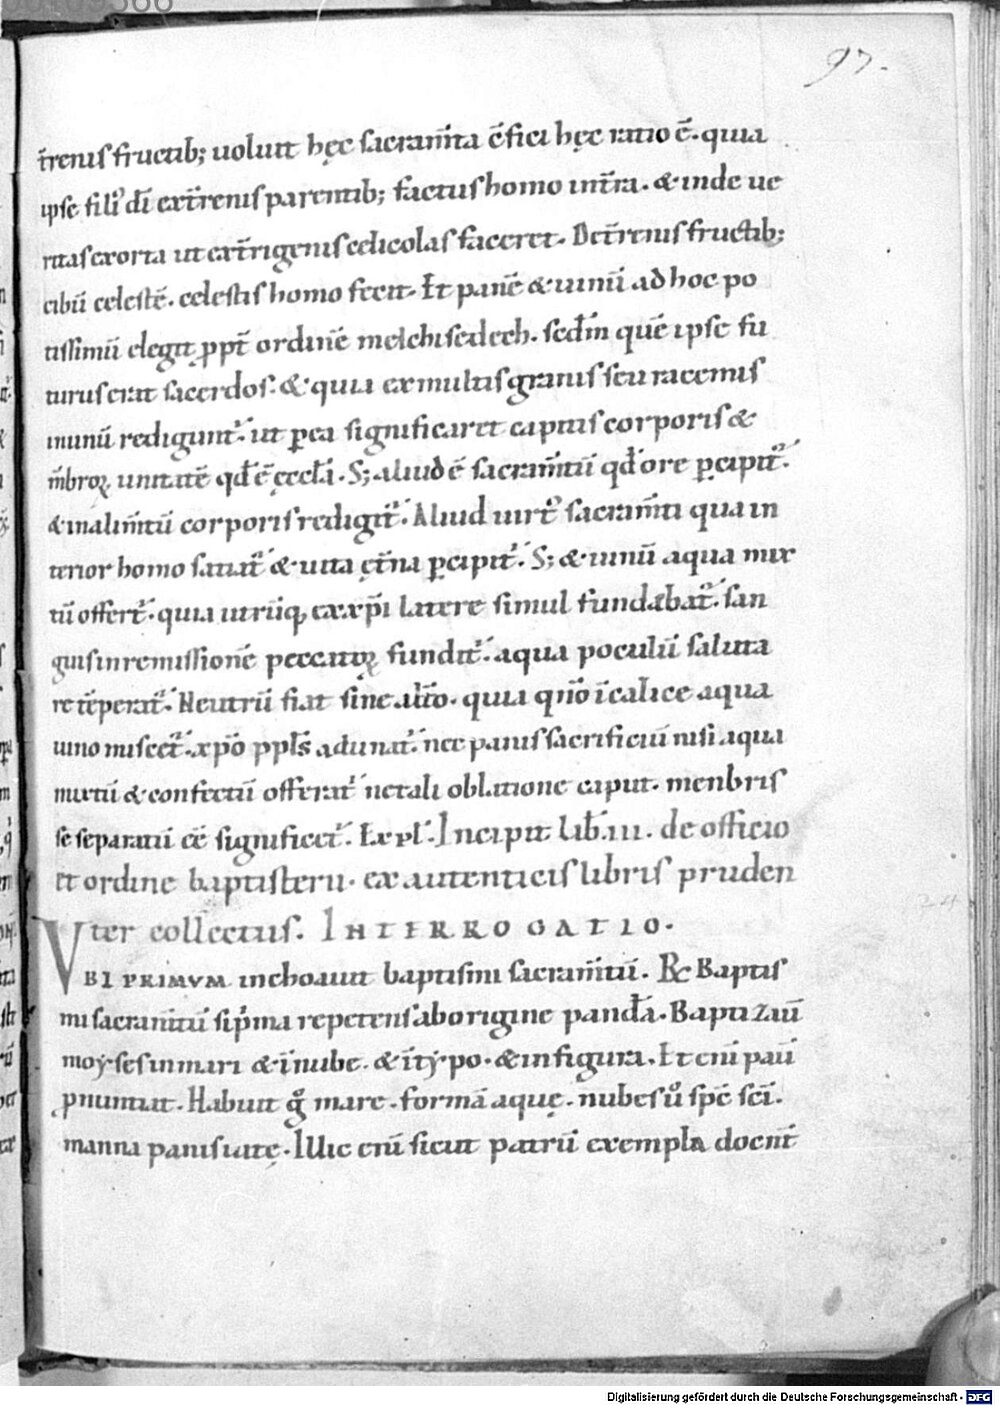 97.
t̄renis fructib; uoluit hęc sacram̄ta ēfici hęc ratio ē. quia
ipse fili᾽ dī ext̄renis parentib; factus homo int̄ra. & inde ue
ritas exorta ut ext̄rigenis celicolas faceret. Det̄renis fructib;
cibū celestē. celestis homo fecit. Et panē & uinū ad hoc po
tissimū elegit ꝓpt̄ ordinē melchisedech. scd̄m quē ipse fu
turus erat sacerdos. & quia ex multis granis seu racemis
in unū redigunt᾽. ut ꝑea significaret capitis corporis &
m̄broꝝ unitatē qd̄ ē ęccl̄a. S; aliud ē sacram̄tū qd̄ ore ꝑcipit᾽.
& in alim̄tū corporis redigit᾽. Aliud uirt᾽ sacram̄ti qua in
terior homo satiat᾽ & uita ęt̄na ꝑcipit᾽. S; & uinū aqua mix
tū offert᾽. quia utrūq; ex xp̄i latere simul fundebat᾽. san
guis in remissionē peccatoꝝ fundit᾽. aqua poculū saluta
re tēperat᾽. Neutrū fiat sine alt̄o. quia qn̄o ī calice aqua
uino miscet᾽. xp̄o ppl̄s adunat᾽. nec panis sacrificiū nisi aqua
mixtū & confectū offerat᾽ ne tali oblatione caput. menbris
se separatū eē significet᾽. Expl᾽. Incipit lib̄. iii. de officio
et ordine baptisterii. ex autenticis libris pruden
ter collectus. INTERROGATIO.
VBI PRIMVM inchoauit baptismi sacram̄tū. R͞c Baptis
mi sacram̄tū si p̄ma repetens ab origine pandā. Baptizauit
moẏses in mari & ī nube. & ī tẏpo. & in figura. Et enī paū
p̄nuntiat. Habuit g͛ mare. formā aquę. nubes ů spē sc̄i.
manna panis uitę. Illic enī sicut patrū exempla docent̄
Digitalisierung gefördert durch die Deutsche Forschungsgemeinschaft - DFG